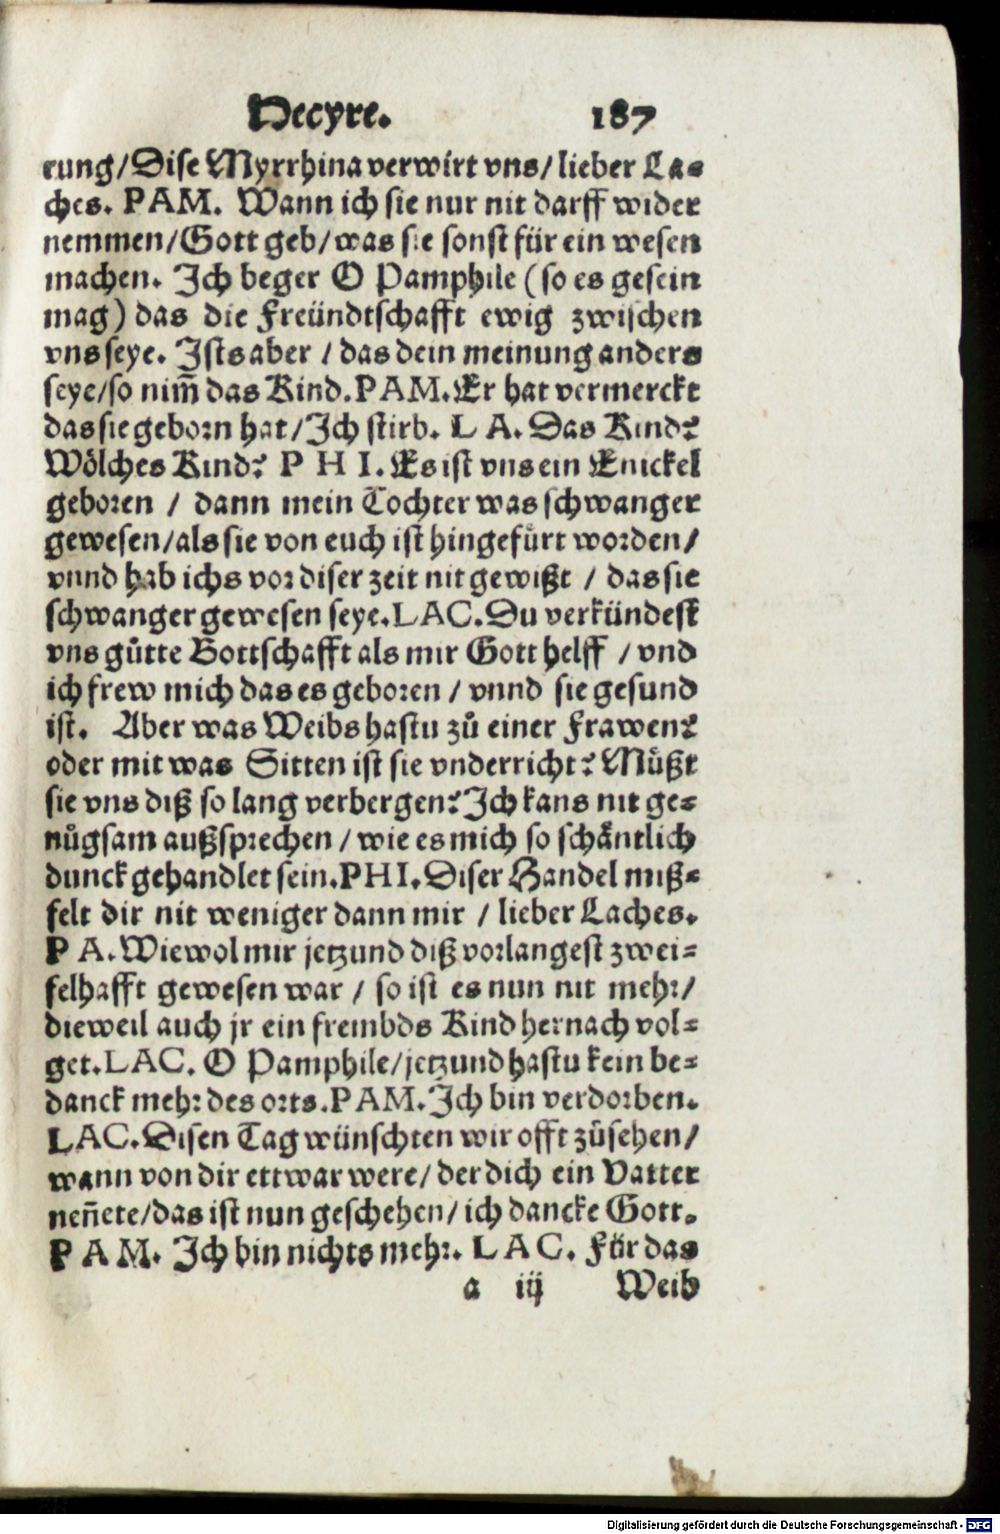 Hecyre. 187
rung/Dise Myrrhina verwirt vns/lieber La-
ches. PAM. Wann ich sie nur nit darff wider
nemmen/Gott geb/was sie sonst für ein wesen
machen. Ich beger O Pamphile (so es gesein
mag) das die Freündtschafft ewig zwischen
vns seye. Ists aber / das dein meinung anders
seye/so nim̃ das Kind.PAM.Er hat vermerckt
das sie geborn hat/Ich stirb. LA. Das Kind?
Wölches Kind? PHI. Es ist vns ein Enickel
geboren / dann mein Tochter was schwanger
gewesen/als sie von euch ist hingefürt worden/
vnnd hab ichs vor diser zeit nit gewißt / das sie
schwanger gewesen seye.LAC.Du verkündest
vns gůtte Bottschafft als mir Gott helff / vnd
ich frew mich das es geboren / vnnd sie gesund
ist. Aber was Weibs hastu zů einer Frawen?
oder mit was Sitten ist sie vnderricht? Můßt
sie vns diß so lang verbergen? Ich kans nit ge-
nůgsam außsprechen / wie es mich so schäntlich
dunck gehandlet sein.PHI.Diser Handel miß-
felt dir nit weniger dann mir / lieber Laches.
PA.Wiewol mir jetzund diß vorlangest zwei-
felhafft gewesen war / so ist es nun nit mehr/
dieweil auch jr ein frembds Kind hernach vol-
get.LAC. O Pamphile/jetzund hastu kein be-
danck mehr des orts.PAM.Ich bin verdorben.
LAC.Disen Tag wünschten wir offt zůsehen/
wann von dir ettwar were/der dich ein Vatter
neñete/das ist nun geschehen/ich dancke Gott.
PAM. Ich bin nichts mehr. LAC. Für das
a iij Weib
Digitalisierung gefördert durch die Deutsche Forschungsgemeinschaft - DFG